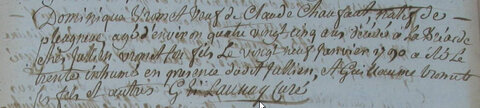 Dominique Vronet veuf de Claude Chaufaut natif de
pleugneuc agé d'environ quatre vingt cinq ans décédé a La Briarde
chés Jullien vronet son fils Le vingt neuf janvier 1790 a été Le
trente inhumé en presence dudit Jullien, et Guillaume vronet
ses fils et autres G. h. Launay Curé